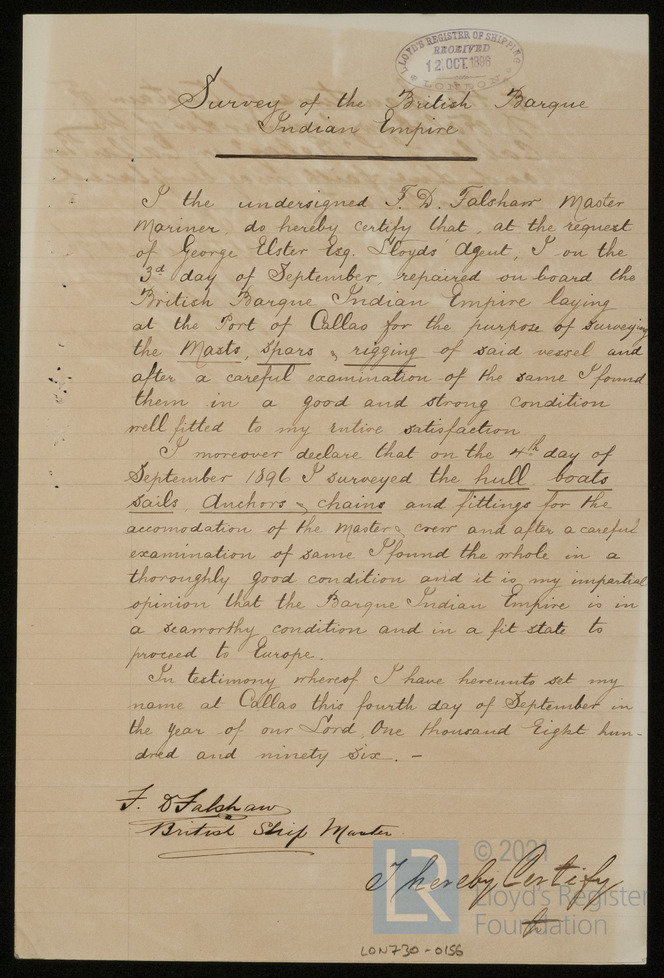 LLOYD'S REGISTER OF SHIPPING
RECEIVED
12 OCT 1898
LONDON
Survey of the British Barque
Indian Empire
I the undersigned F. D. Falshaw Master
Mariner, do hereby certify that, at the request
of George Elster Esq. Lloyds' Agent, I on the
3rd day of September, repaired on board the
British Barque Indian Empire laying
at the Port of Callao for the purpose of surveying
the Masts, spars & rigging of said vessel and
after a careful examination of the same I found
them in a good and strong condition
well fitted to my entire satisfaction
I moreover declare that on the 4th day of
September 1896 I surveyed the hull, boats
sails, Anchors & chains and fittings for the
accomodation of the Master & crew and after a careful
examination of same I found the whole in a
thoroughly good condition and it is my impartial
opinion that the Barque Indian Empire is in
a seaworthy condition and in a fit state to
proceed to Europe.
In testimony whereof I have hereunto set my
name at Callao this fourth day of September in
the Year of our Lord, One thousand Eight hun-
dred and ninety six. —
F. D Falshaw
British Ship Master
I hereby Certify
LR
© 2021
Lloyd's Register
Foundation
LON730-0156